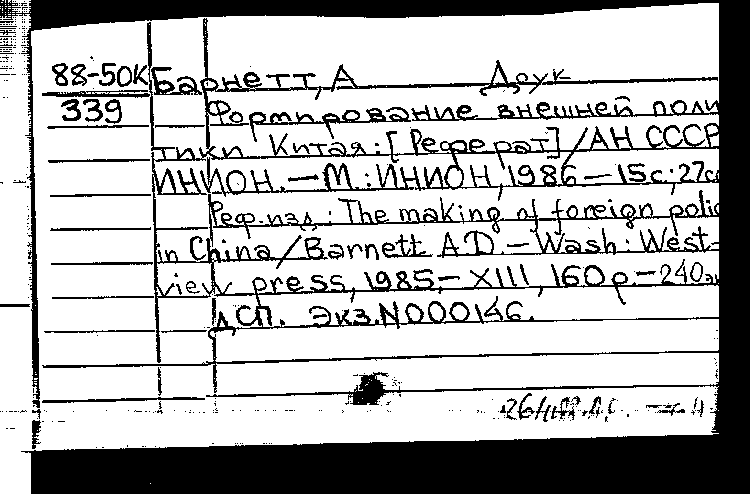 88-50К Барнетт, А Доук
339 Формирование внешней поли
тики Китая: [Реферат] / АН СССР
ИНИОН. — М.: ИНИОН, 1986 — 15с; 27с
Реф. изд.: The making of foreign polic
in China / Barnett A.D. — Wash: West-
view press, 1985, — XIII, 160p. — 240
ДСП. Экз. N000146.